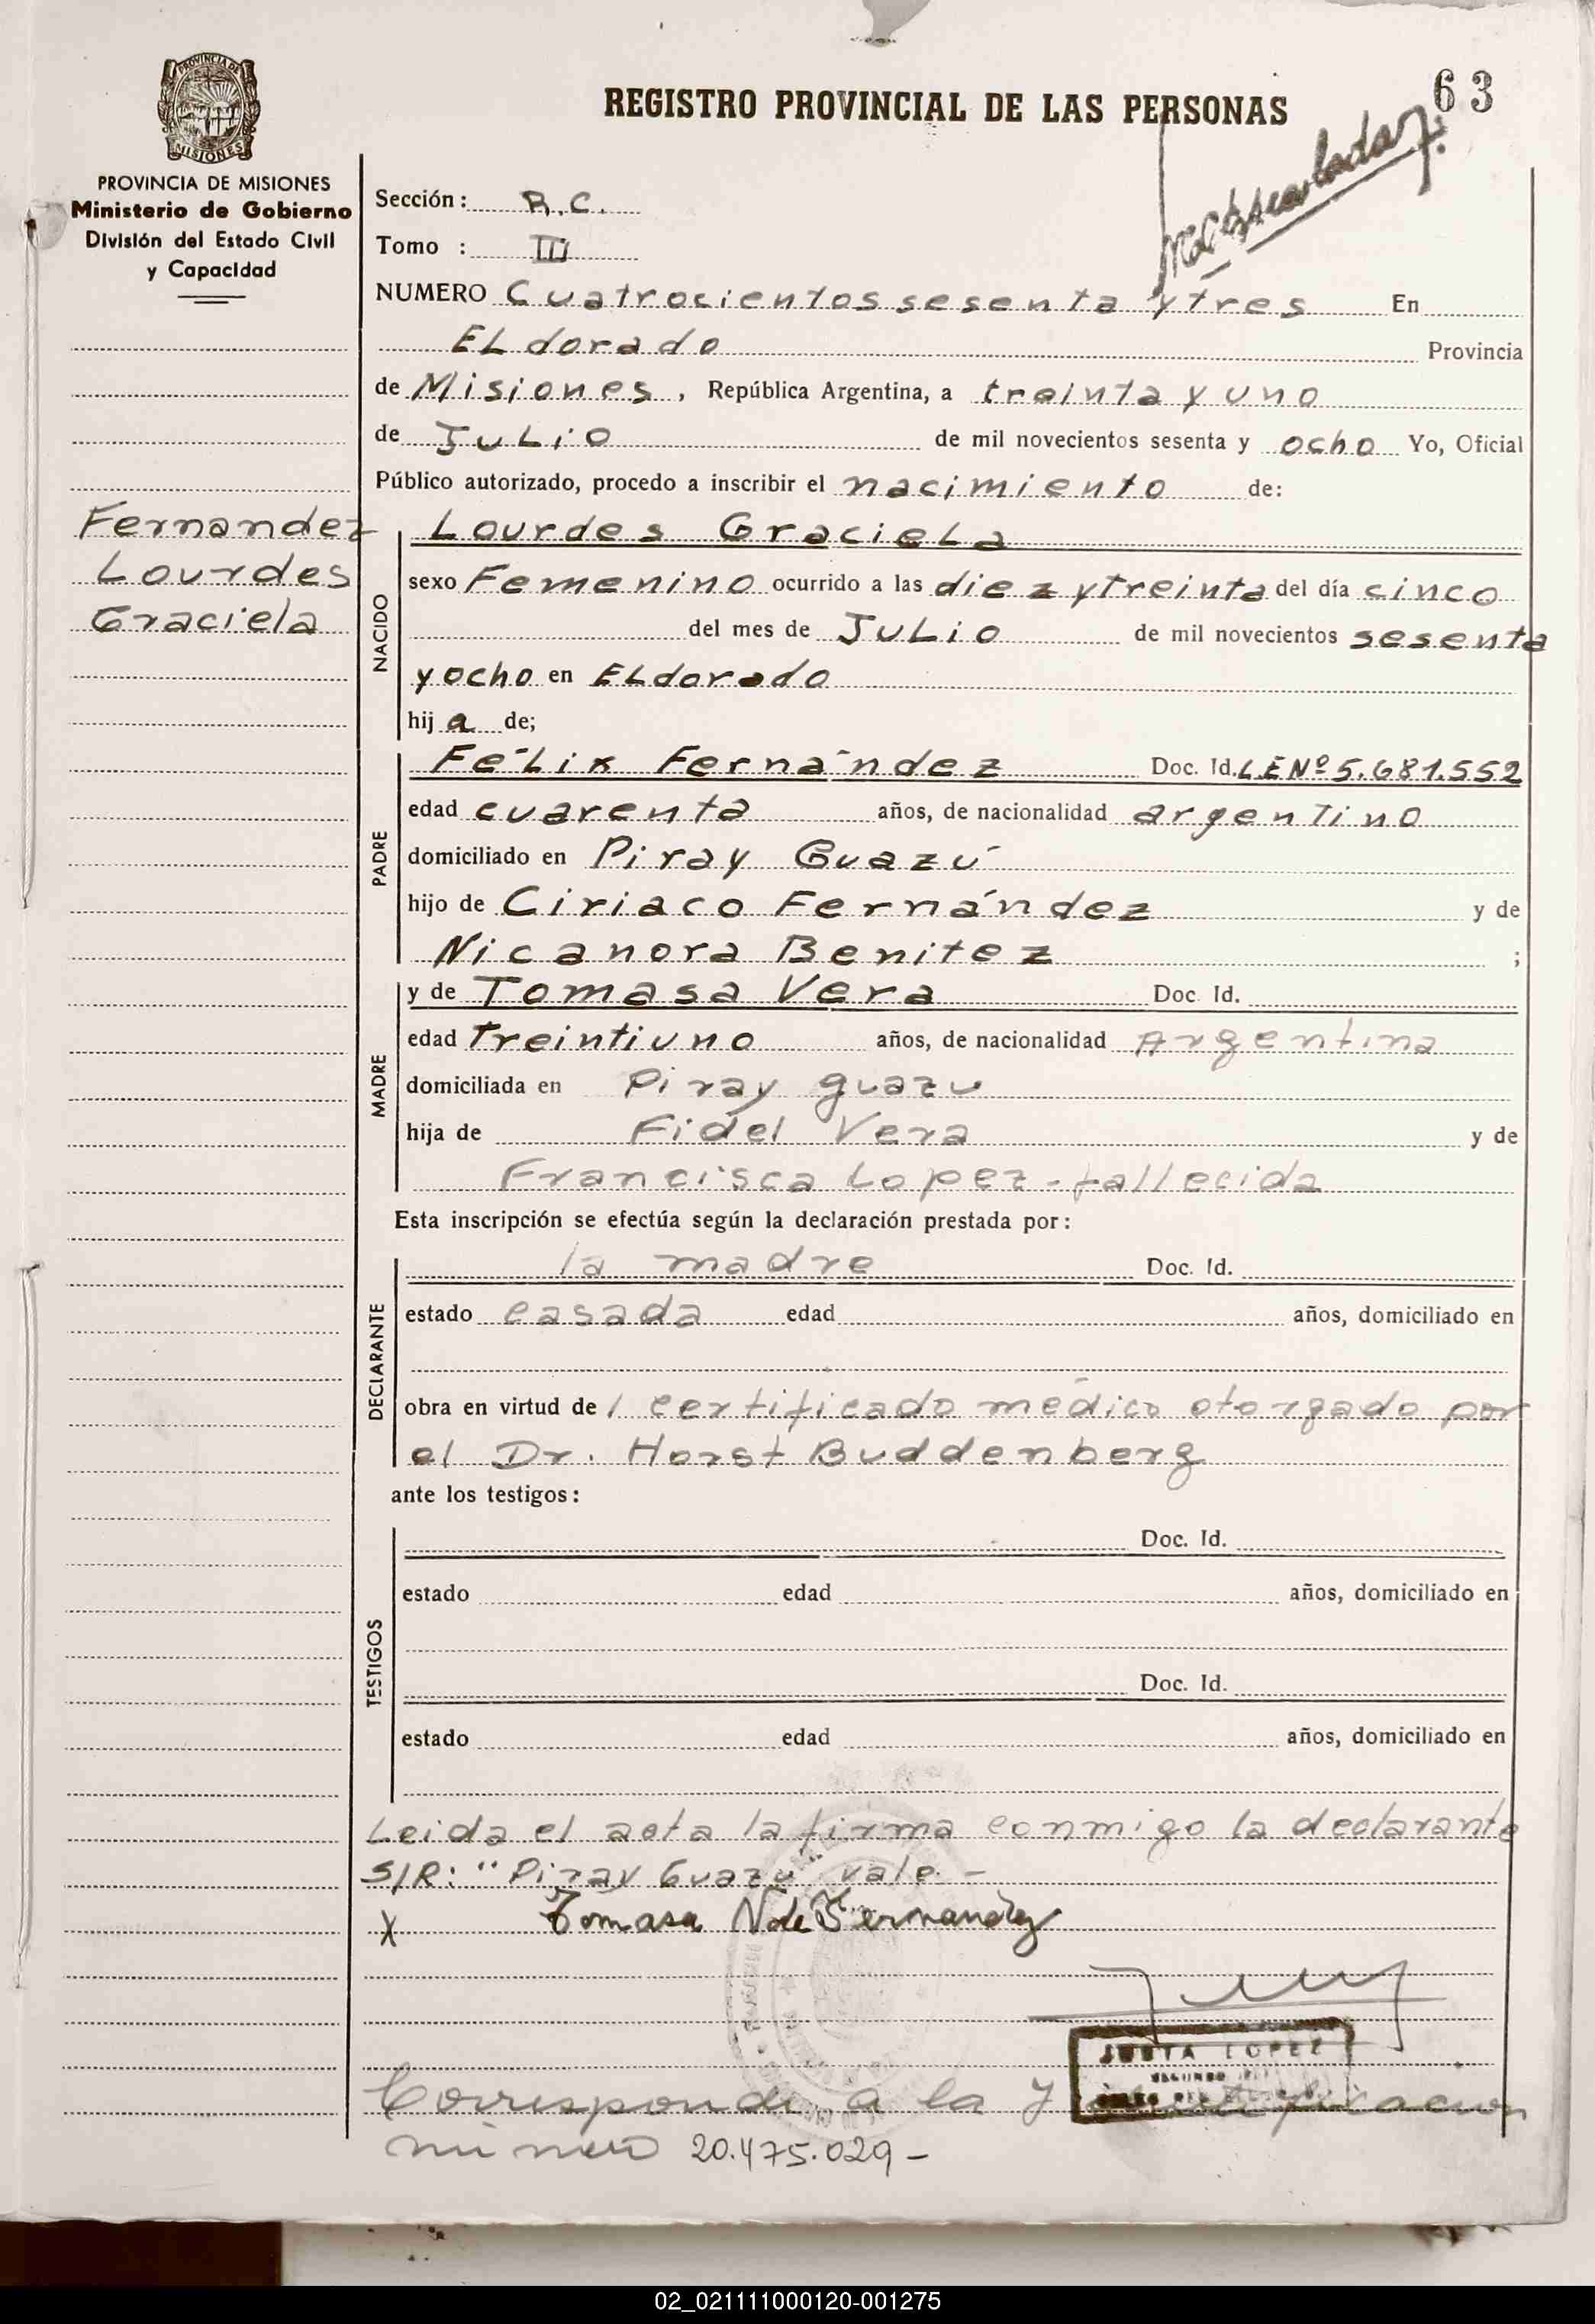 63
REGISTRO PROVINCIAL DE LAS PERSONAS
Matriculada
PROVINCIA DE
MISIONES
PROVINCIA DE MISIONES
Ministerio de Gobierno
División del Estado Civil
y Capacidad
Fernandez
Lourdes
Graciela
Sección: R.C.
Tomo : III
NUMERO Cuatrocientos sesenta y tres En
ELdorado Provincia
de Misiones, República Argentina, a treinta y uno
de JuLio de mil novecientos sesenta y ocho Yo, Oficial
Público autorizado, procedo a inscribir el nacimiento de:
NACIDO
Lourdes GracieLa
sexo Femenino ocurrido a las diez y treinta del día cinco
del mes de JuLio de mil novecientos sesenta
y ocho en ELdorado
hij a de;
PADRE
FéLix Fernández Doc. Id. L.E Nº 5.681.552
edad cuarenta años, de nacionalidad argentino
domiciliado en Piray Guazú
hijo de Ciriaco Fernández y de
Nicanora Benitez ;
MADRE
y de Tomasa Vera Doc. Id.
edad Treintiuno años, de nacionalidad Argentina
domiciliada en Piray guazu
hija de Fidel Vera y de
Francisca Lopez - fallecida
Esta inscripción se efectúa según la declaración prestada por:
DECLARANTE
la madre Doc. Id.
estado casada edad años, domiciliado en
obra en virtud de 1 certificado médico otorgado por
el Dr. Horst Buddenberg
ante los testigos:
TESTIGOS
Doc. Id.
estado edad años, domiciliado en
Doc. Id.
estado edad años, domiciliado en
Leida el acta la firma conmigo la declarante
S/R: "Piray Guazu" vale -
X Tomasa V. de Fernandez
JUSTA LOPEZ
Corresponde a la
numero 20.475.029 -
02_021111000120-001275